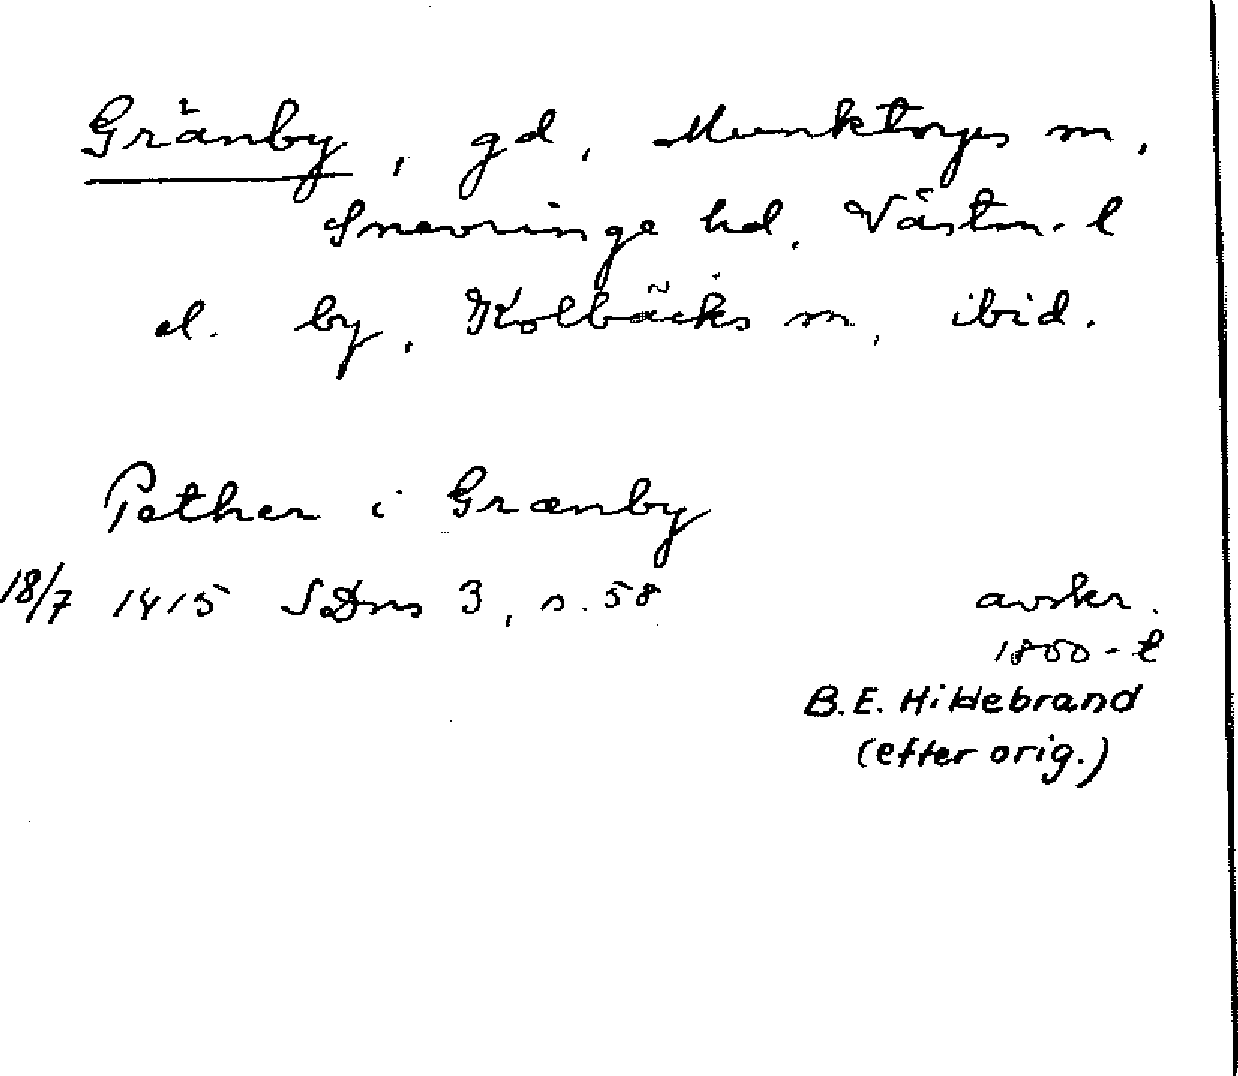 Gränby, gd, Munktorps sn,
Snevringe hd, Västm. l
el. by, Kolbäcks sn, ibid.
Pether i Grænby
18/7 1415 SDns 3, s. 58
avskr.
1800-t
B.E. Hildebrand
(efter orig.)